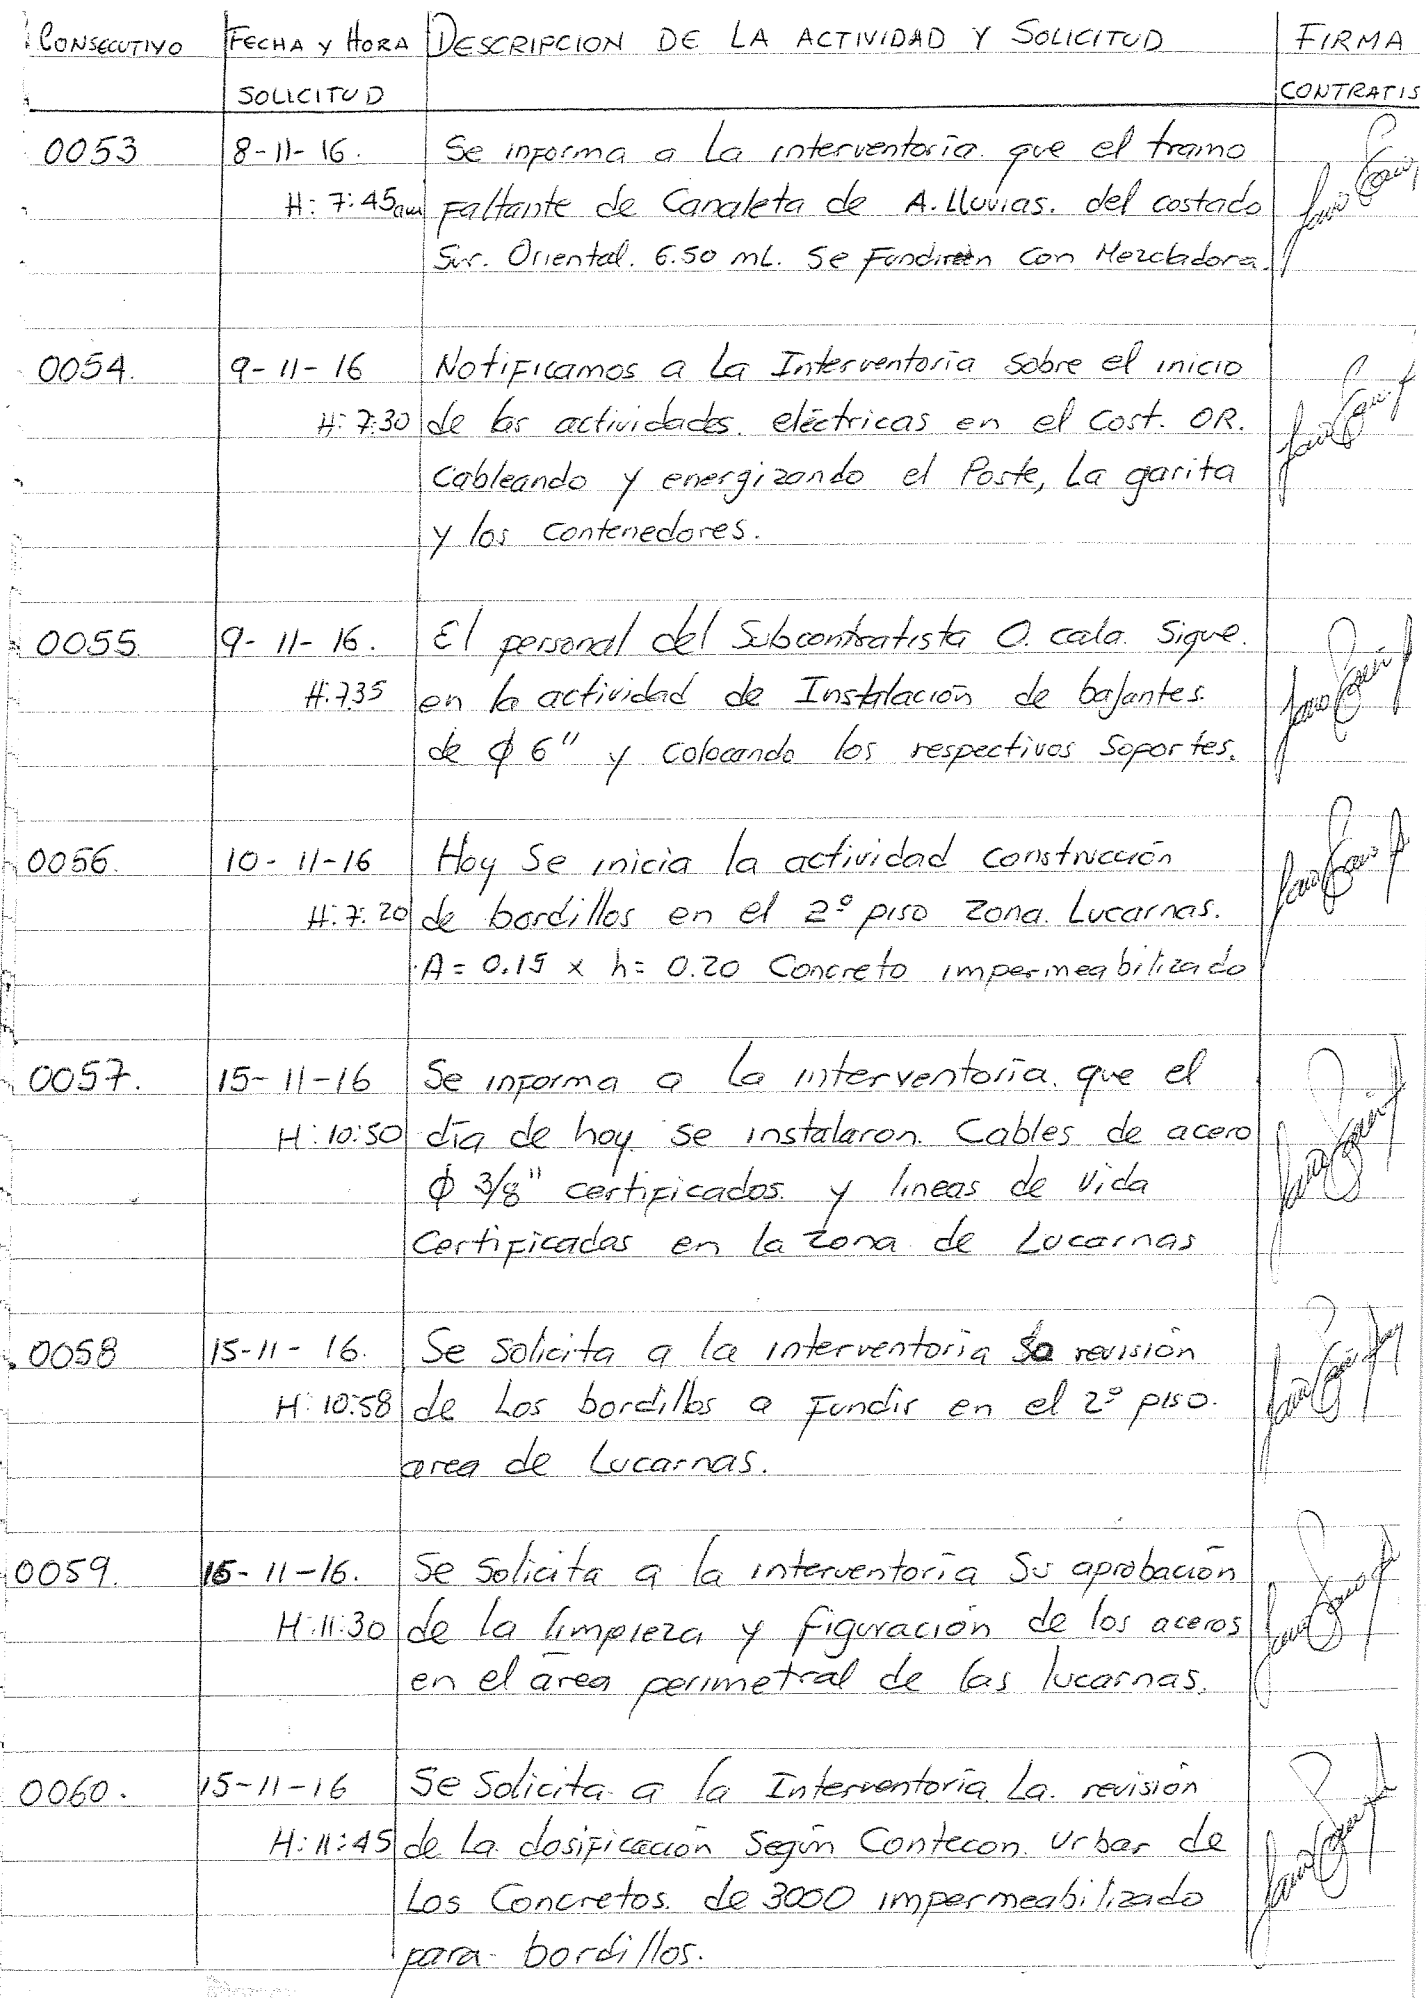 CONSECUTIVO FECHA Y HORA DESCRIPCION DE LA ACTIVIDAD Y SOLICITUD FIRMA
SOLICITUD CONTRATIS
0053 8-11-16. Se informa a La interventoría. que el tramo
H: 7:45am faltante de Canaleta de A. Lluvias. del costado
Sur. Oriental. 6.50 mL. Se Fundirán con Mezcladora.
0054. 9-11-16 Notificamos a La Interventoría sobre el inicio
H: 7:30 de las actividades. eléctricas en el Cost. OR.
Cableando y energizando el Poste, La garita
y los Contenedores.
0055 9-11-16. El personal del Subcontratista O. cala. Sigue.
H: 7:35 en la actividad de Instalación de bajantes.
de ϕ 6" y Colocando los respectivos Soportes.
0056. 10-11-16 Hoy Se inicia la actividad construcción
H: 7:20 de bordillos en el 2º piso Zona. Lucarnas.
A = 0.15 x h = 0.20 Concreto impermeabilizado
0057. 15-11-16 Se informa a La interventoría. que el
H: 10:50 día de hoy. se instalaron. Cables de acero
ϕ 3/8" certificados y lineas de Vida
Certificadas en la Zona de Lucarnas
0058 15-11-16. Se Solicita a la interventoría la revisión
H: 10:58 de Los bordillos a Fundir en el 2º piso.
area de Lucarnas.
0059. 15-11-16. Se Solicita a la interventoría Su aprobación
H: 11:30 de la limpieza y figuración de los aceros
en el área perimetral de las lucarnas.
0060. 15-11-16 Se Solicita a la Interventoría La. revisión
H: 11:45 de La dosificación Según Contecon Urbar de
Los Concretos. de 3000 impermeabilizado
para bordillos.